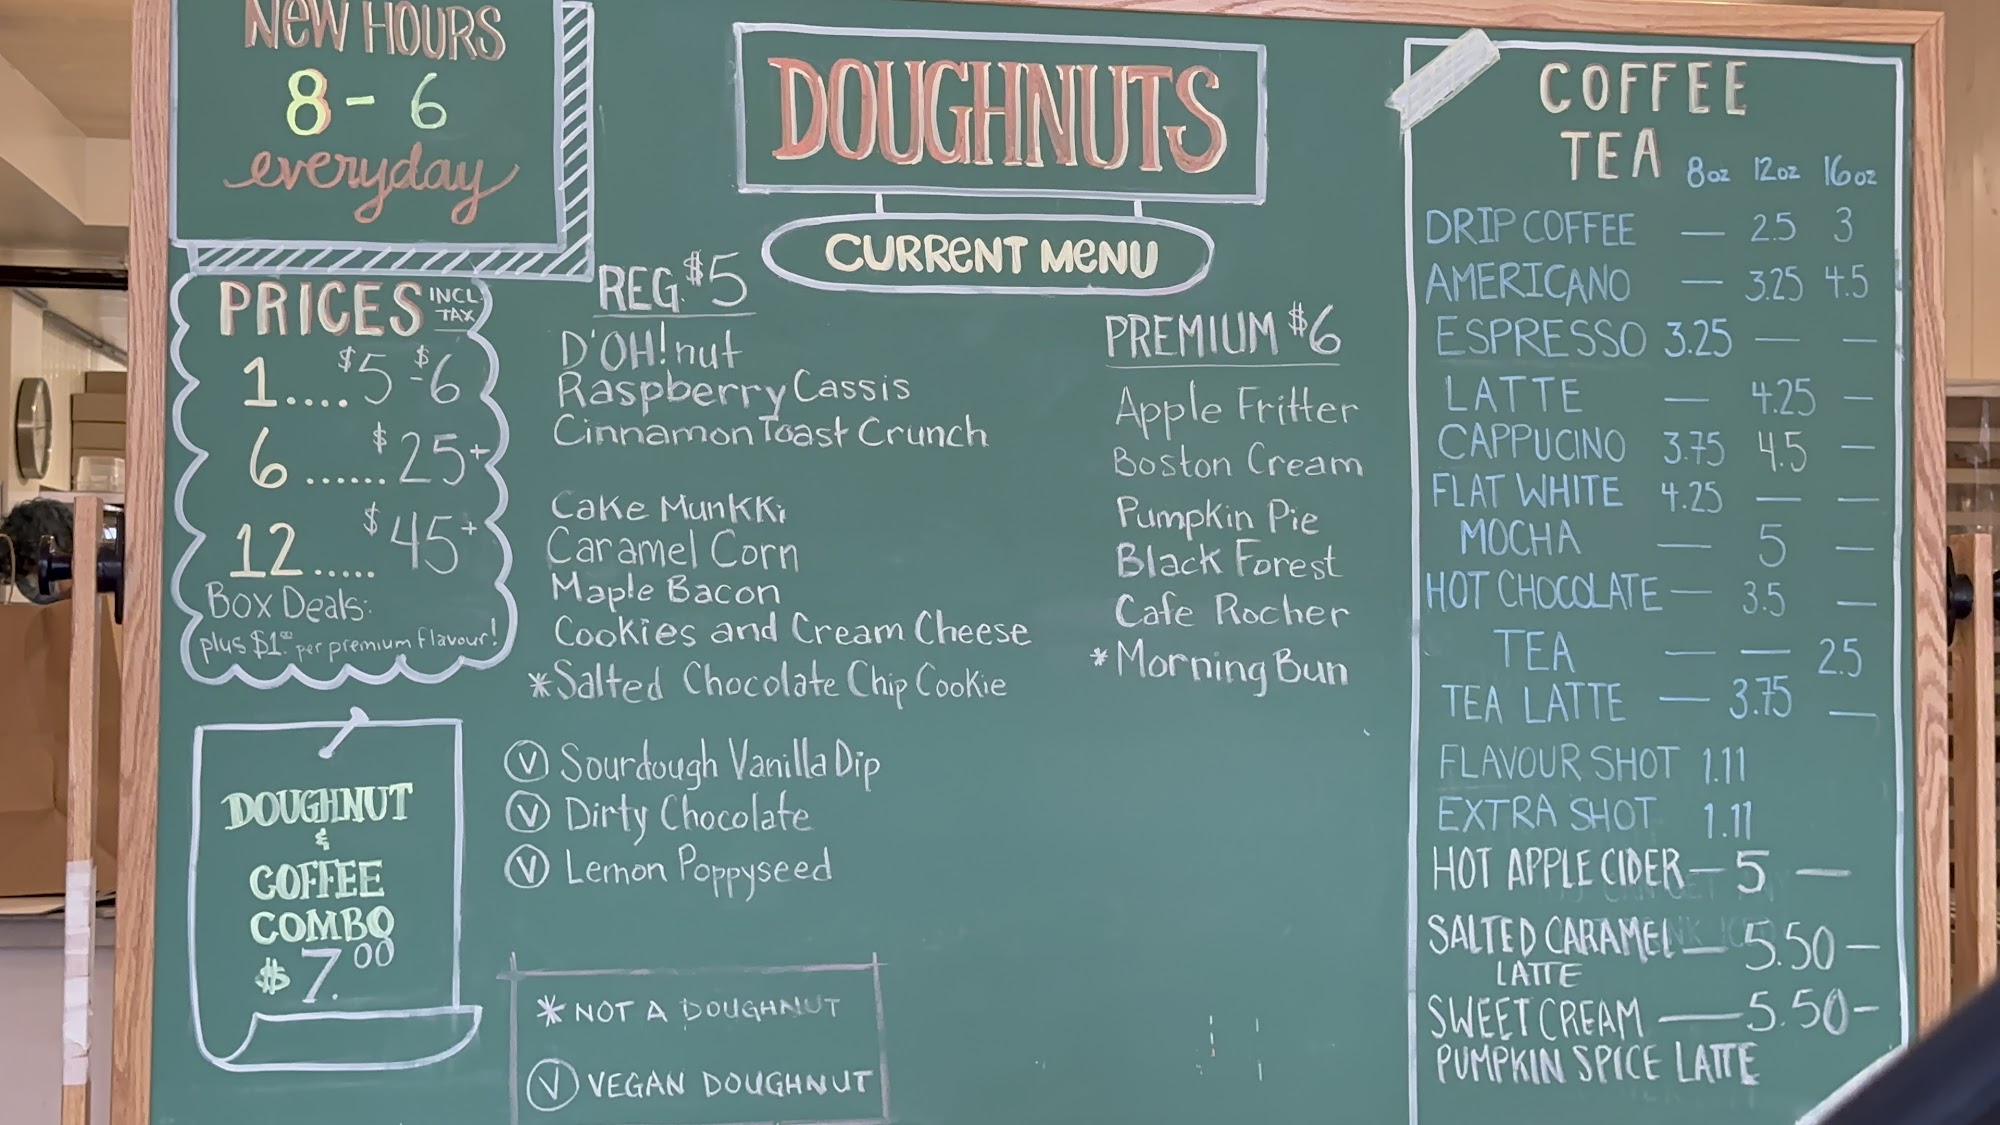 NEW HOURS
8 - 6
everyday
PRICES INCL. TAX
1.... $5 - $6
6 ...... $25+
12 ..... $45+
Box Deals:
plus $1.00 per premium flavour!
DOUGHNUT
&
COFFEE
COMBO
$7.00
DOUGHNUTS
CURRENT MENU
REG. $5
D'OH!nut
Raspberry Cassis
Cinnamon Toast Crunch
Cake Munkki
Caramel Corn
Maple Bacon
Cookies and Cream Cheese
*Salted Chocolate Chip Cookie
Ⓥ Sourdough Vanilla Dip
Ⓥ Dirty Chocolate
Ⓥ Lemon Poppyseed
* NOT A DOUGHNUT
Ⓥ VEGAN DOUGHNUT
PREMIUM $6
Apple Fritter
Boston Cream
Pumpkin Pie
Black Forest
Cafe Rocher
*Morning Bun
COFFEE
TEA 8oz 12oz 16oz
DRIP COFFEE — 2.5 3
AMERICANO — 3.25 4.5
ESPRESSO 3.25 — —
LATTE — 4.25 —
CAPPUCINO 3.75 4.5 —
FLAT WHITE 4.25 — —
MOCHA — 5 —
HOT CHOCOLATE — 3.5 —
TEA — — 2.5
TEA LATTE — 3.75 —
FLAVOUR SHOT 1.11
EXTRA SHOT 1.11
HOT APPLE CIDER — 5 —
SALTED CARAMEL — 5.50 —
LATTE
SWEET CREAM — 5.50 -
PUMPKIN SPICE LATTE